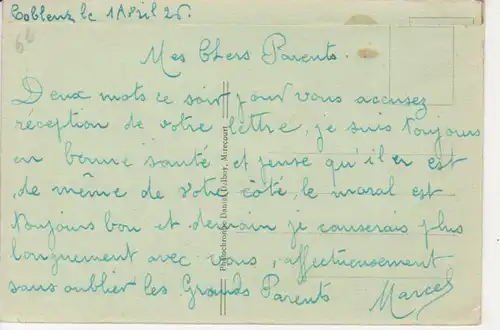 Coblenz le 1 Avril 26.
Mes Chers Parents.
Deux mots ce soir pour vous accusez
réception de votre lettre, je suis toujours
en bonne santé et pense qu'il en est
de même de votre côté, le moral est
toujours bon et demain je causerais plus
longuement avec vous, affectueusement
sans oublier les Grands Parents Marcel
Photochromie Daniel Delboy, Mirecourt